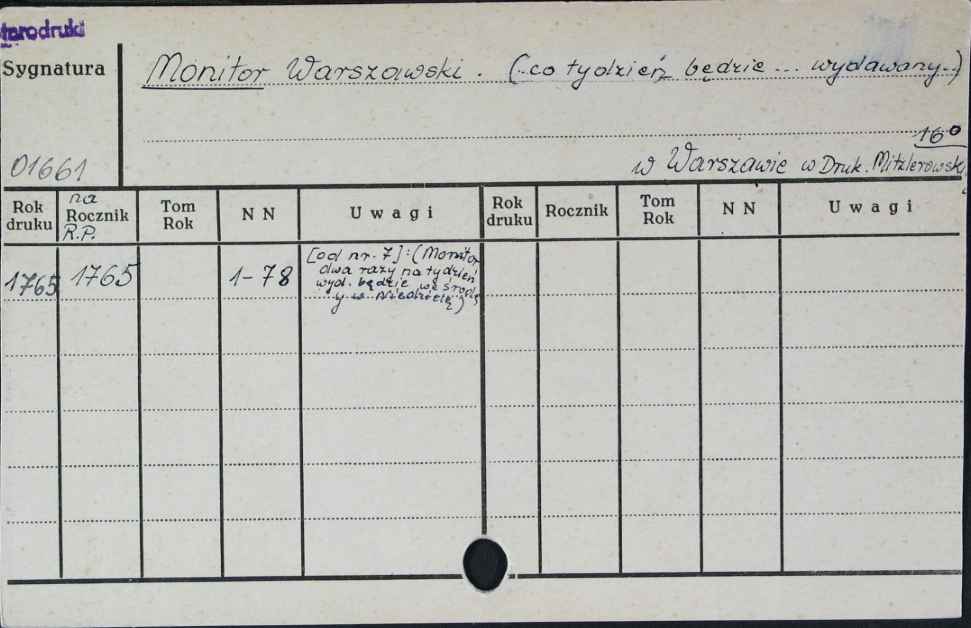 Starodruki
Sygnatura
Monitor Warszawski. (..co tydzień będzie ... wydawany..)
16°
01661
w Warszawie w Druk. Mitzlerowski
Rok druku
na Rocznik R.P.
Tom Rok
N N
Uwagi
Rok druku
Rocznik
Tom Rok
N N
Uwagi
1765
1765
1-78
[od nr. 7]: (Monitor
dwa razy na tydzień
wyd. będzie we środę
y w Niedzielę)